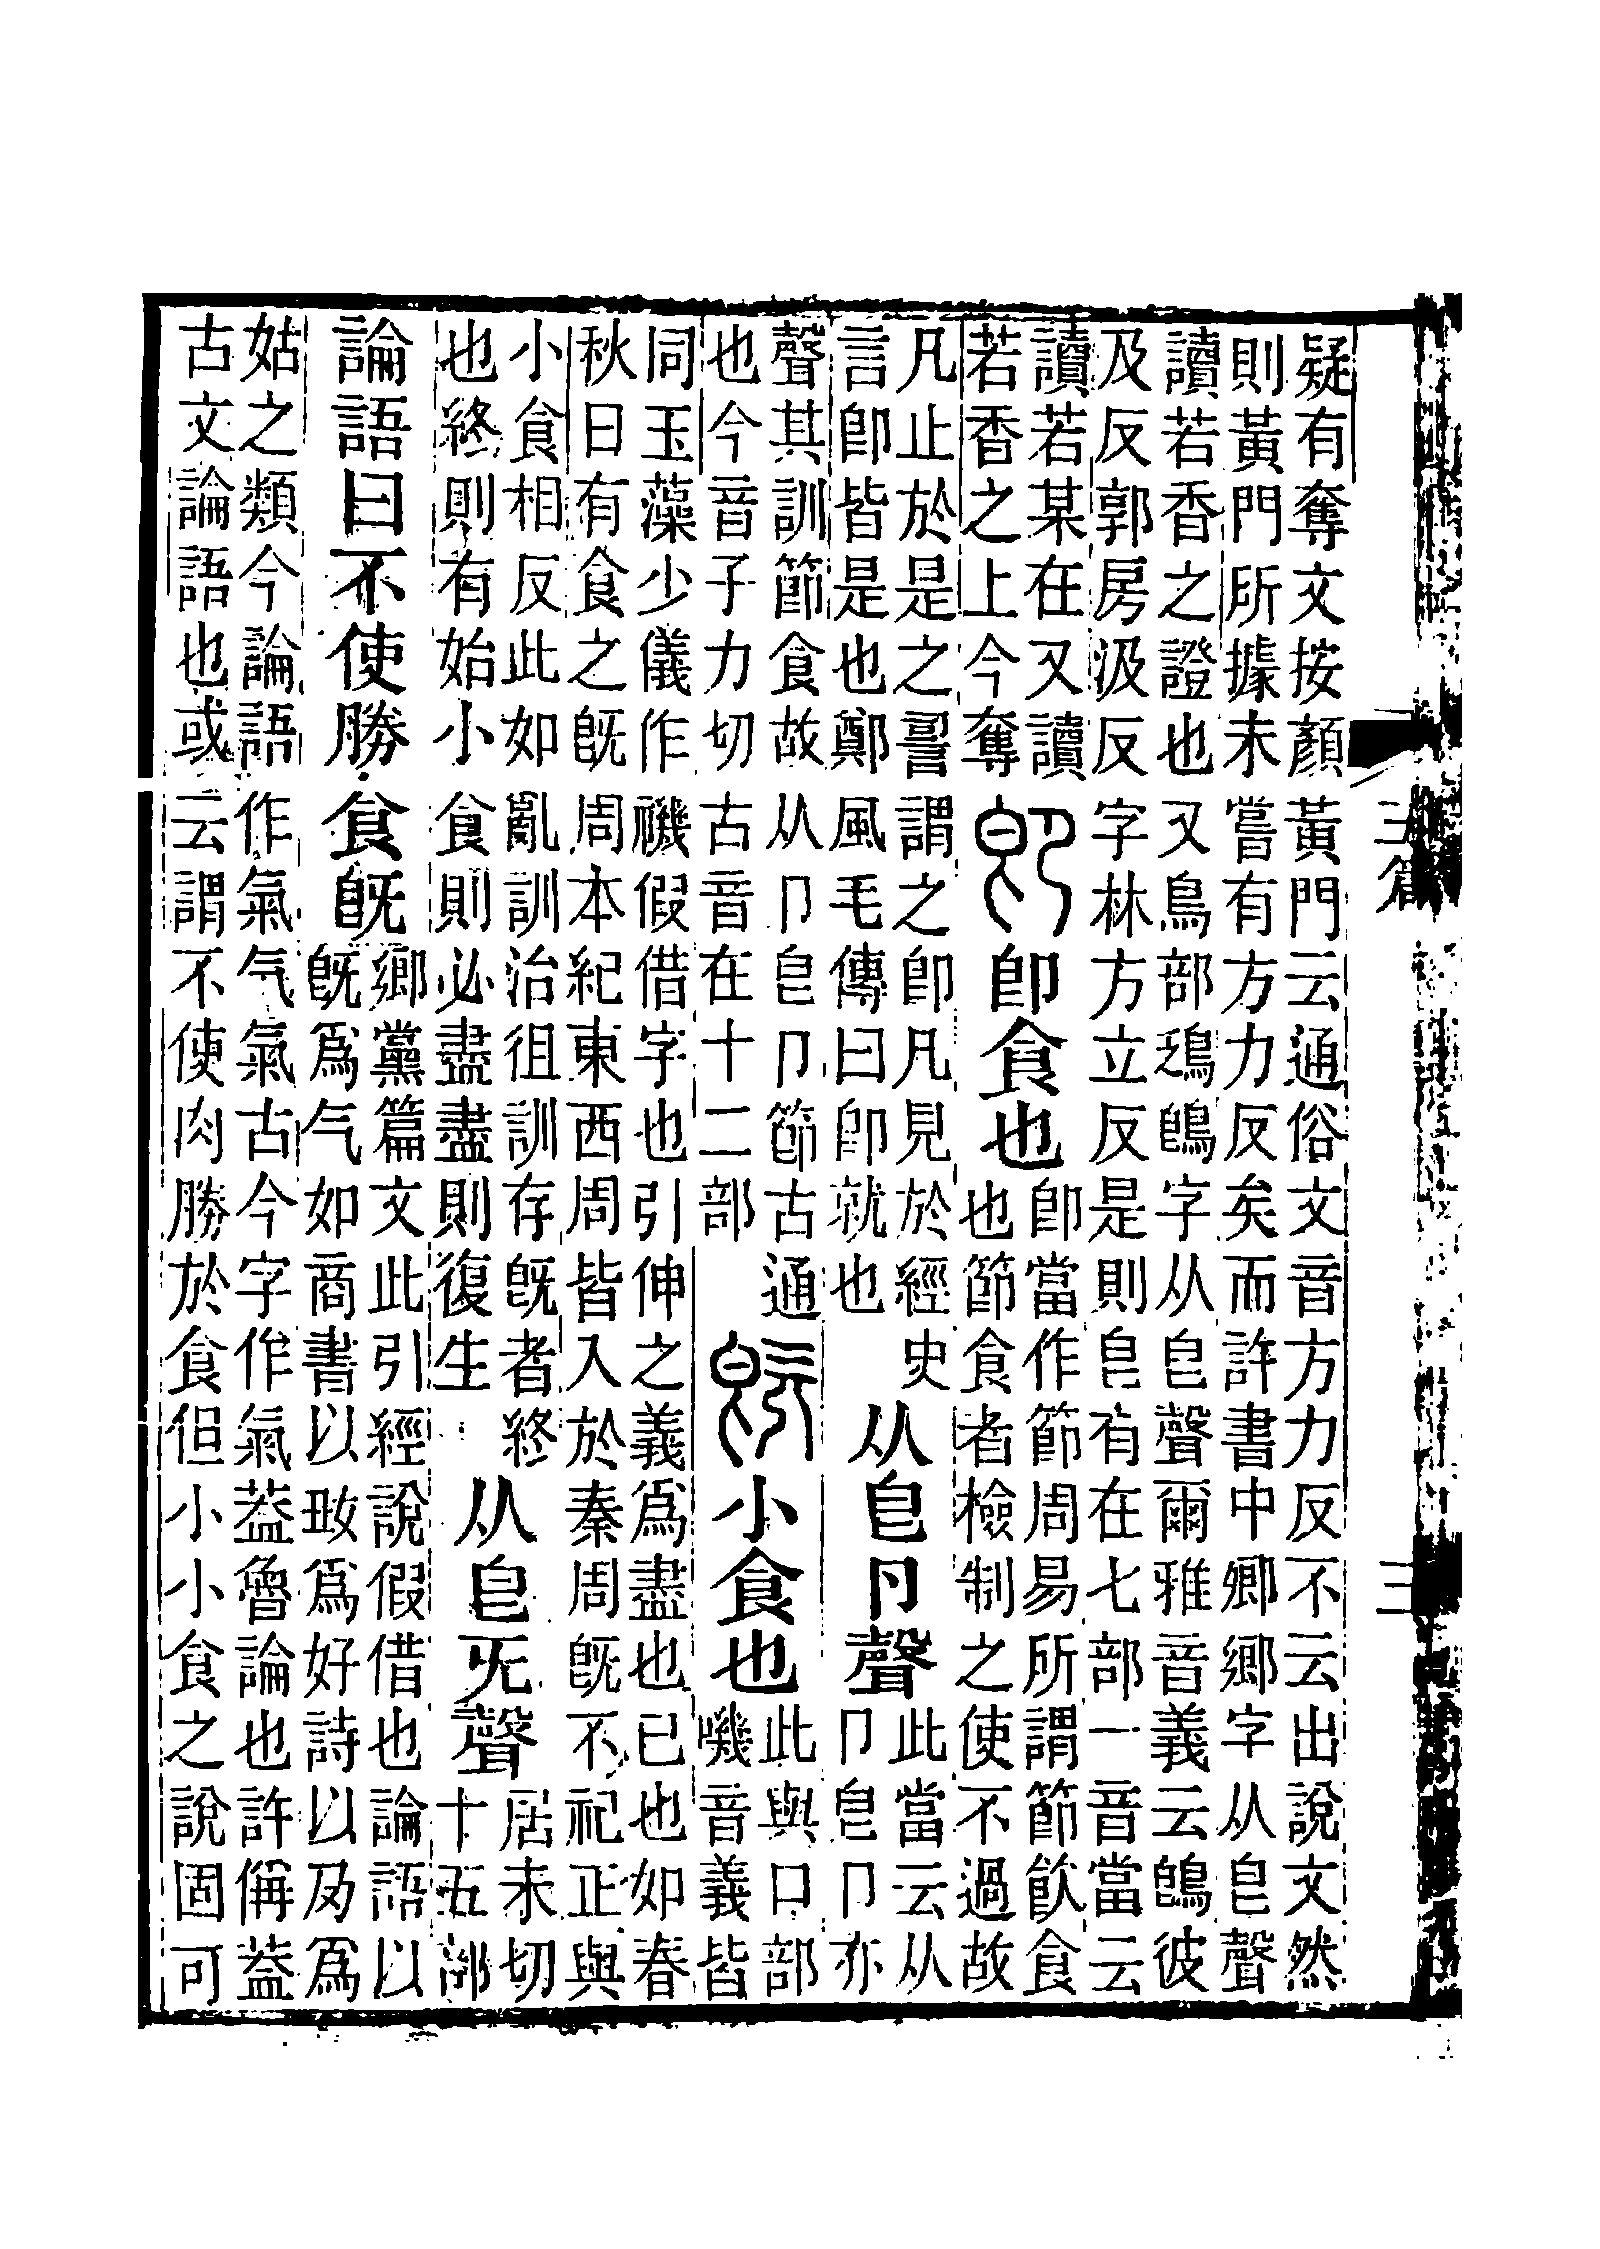 疑有奪文按顏黃門云通俗文音方力反不云出說文然
則黃門所據未嘗有方力反矣而許書中鄉鄉字从皀聲
讀若香之證也又鳥部鵖鴔字从皀聲爾雅音義云鴔彼
及反郭房汲反字林方立反是則皀有在七部一音當云
讀若某在又讀
若香之上今奪
卽食也
卽當作節周易所謂節飮食
也節食者檢制之使不過故
凡止於是之䛐謂之卽凡見於經史
言卽皆是也鄭風毛傳曰卽就也
从皀卪聲
此當云从
卪皀卪亦
聲其訓節食故从卪皀卪節古通
也今音子力切古音在十二部
小食也
此與口部
嘰音義皆
同玉藻少儀作禨假借字也引伸之義爲盡也已也如春
秋曰有食之旣周本紀東西周皆入於秦周旣不祀正與
小食相反此如亂訓治徂訓存旣者終
也終則有始小食則必盡盡則復生
从皀旡聲
居未切
十五部
論語曰不使勝食旣
鄉黨篇文此引經說假借也論語以
旣爲气如商書以𡚽爲好詩以及爲
姑之類今論語作氣气氣古今字作氣葢魯論也許偁葢
古文論語也或云謂不使肉勝於食但小小食之說固可
三篇
三